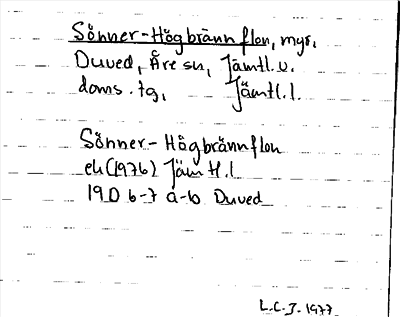 Sönner-Högbrännflon, myr,
Duved, Åre sn, Jämtl. v.
doms. tg, Jämtl. l.
Sönner-Högbrännflon
ek (1976) Jämtl. l
19D 6-7 a-b Duved
L.C.J. 1977